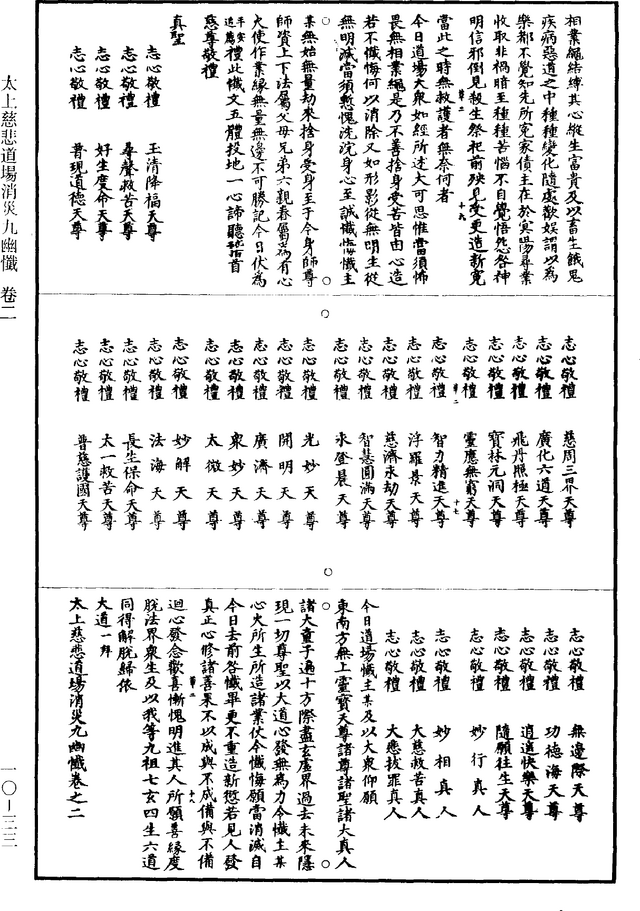 相業繩結縛其心縱生富貴及以畜生餓鬼
疾病惡道之中種種變化隨處歡娛謂以為
樂都不覺知先所寃家債主在於冥陽尋業
收取非禍暗至種種苦惱不自覺悟怨咎神
明信邪倒見殺生祭祀前殃見受更造新寃
當此之時無救護者無奈何者
今日道場大衆如經所述大可思惟當須怖
畏無相業繩是乃不善捨身受苦皆由心造
若不懺悔何以消除又如形影從無明生從
無明滅當須慙愧洗沈身心至誠懺悔懺主
某無始無量劫來捨身受身至于今身師尊
師資上下法屬父母兄弟六親眷屬為有心
大使作業緣無量無邊不可勝記今日伏為
平安追薦禮此懺文五體投地一心諦聽稽首
慈尊敬禮
真聖
志心敬禮 玉清降福天尊
志心敬禮 尋聲救苦天尊
志心敬禮 好生度命天尊
志心敬禮 普現道德天尊
志心敬禮 慈周三界天尊
志心敬禮 廣化六道天尊
志心敬禮 飛丹照極天尊
志心敬禮 寶林元洞天尊
志心敬禮 靈應無窮天尊
志心敬禮 智力精進天尊
志心敬禮 浮羅景天尊
志心敬禮 慈濟永劫天尊
志心敬禮 智慧圓滿天尊
志心敬禮 永登晨天尊
志心敬禮 光妙天尊
志心敬禮 開明天尊
志心敬禮 廣濟天尊
志心敬禮 衆妙天尊
志心敬禮 太微天尊
志心敬禮 妙解天尊
志心敬禮 法海天尊
志心敬禮 長生保命天尊
志心敬禮 太一救苦天尊
志心敬禮 普慈護國天尊
志心敬禮 無邊際天尊
志心敬禮 功德海天尊
志心敬禮 逍遙快樂天尊
志心敬禮 隨願往生天尊
志心敬禮 妙行真人
志心敬禮 妙相真人
志心敬禮 大慈救苦真人
志心敬禮 大悲拔罪真人
今日道場懺主某及以大衆仰願
東南方無上靈寶天尊諸尊諸聖諸大真人
諸大童子遍十方際盡玄虛界過去未來隱
現一切尊聖以大道心發無為力令懺主某
心火所生所造諸業仗今懺悔願當消滅自
今日去前咎懺畢更不重造新愆若見人發
真正心修諸善果不以成與不成備與不備
迴心發念歡喜慚愧明進其人所願喜緣度
脫法界衆生及以我等九祖七玄四生六道
同得解脫歸依
大道一拜
太上慈悲道場消災九幽懺卷之二
太上慈悲道場消災九幽懺 卷二
一〇－三三